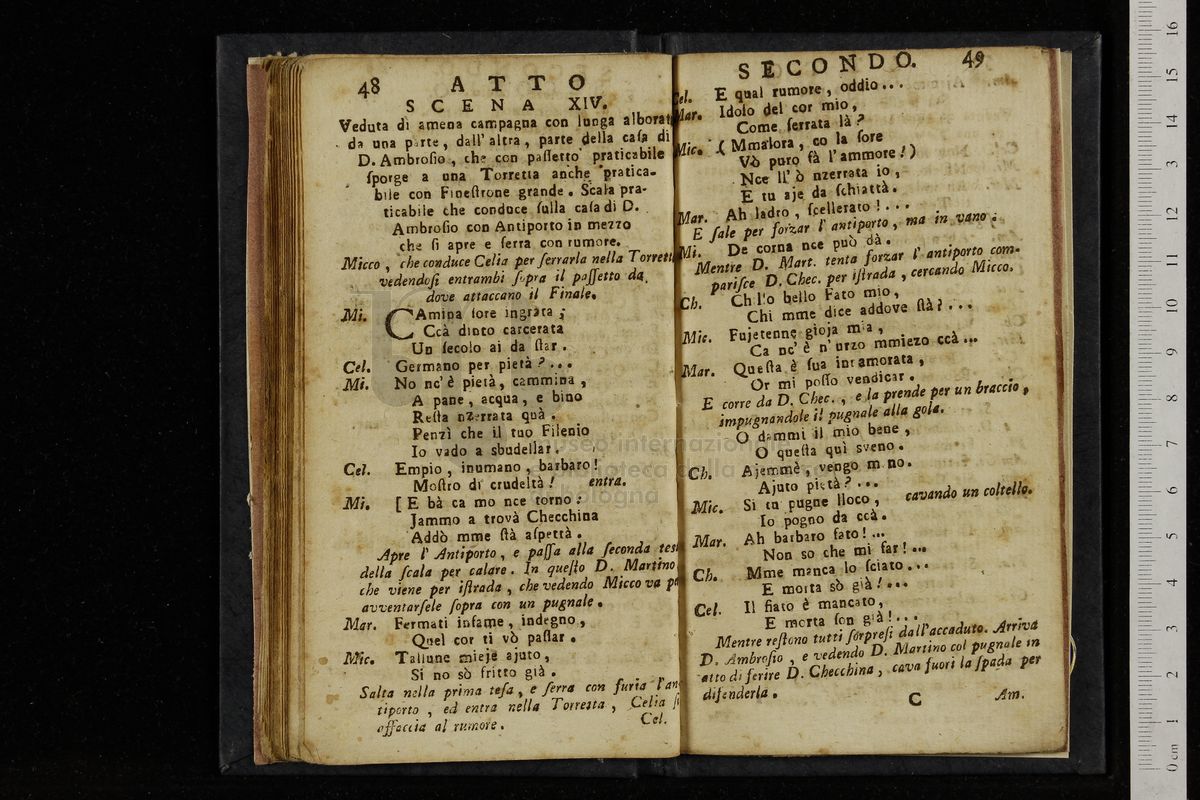 48 ATTO
SCENA XIV.
Veduta di amena campagna con lunga alborat
da una parte, dall'altra, parte della casa di
D. Ambrosio, che con passetto praticabile
sporge a una Torretta anche pratica-
bile con Finestrone grande. Scala pra-
ticabile che conduce sulla casa di D.
Ambrosio con Antiporto in mezzo
che si apre e serra con rumore.
Micco, che conduce Celia per serrarla nella Torrett
vedendosi entrambi sopra il passetto da
dove attaccano il Finale.
Mi. CAmina sore ingrata;
Ccà dinto carcerata
Un secolo ai da star.
Cel. Germano per pietà?...
Mi. No nc'è pietà, cammina,
A pane, acqua, e bino
Resta nzerrata quà.
Penzì che il tuo Filenio
Io vado a sbudellar.
Cel. Empio, inumano, barbaro!
Mostro di crudeltà! entra.
Mi. [E bà ca mo nce torno:
Jammo a trovà Checchina
Addò mme stà aspettà.
Apre l'Antiporto, e passa alla seconda tes
della scala per calare. In questo D. Martino
che viene per istrada, che vedendo Micco va p
avventarsele sopra con un pugnale.
Mar. Fermati infame, indegno,
Quel cor ti vò passar.
Mic. Tallune mieje ajuto,
Si no sò fritto già.
Salta nella prima tesa, e serra con furia l'an
tiporto, ed entra nella Torretta, Celia s
affaccia al rumore.
Cel.
SECONDO. 49
Cel. E qual rumore, oddio...
Mar. Idolo del cor mio,
Come serrata là?
Mic. (Mmalora, co la sore
Vò puro fà l'ammore!)
Nce ll'ò nzerrata io,
E tu aje da schiattà.
Mar. Ah ladro, scellerato!...
E sale per forzar l'antiporto, ma in vano.
Mi. De corna nce può dà.
Mentre D. Mart. tenta forzar l'antiporto com-
parisce D. Chec. per istrada, cercando Micco.
Ch. Chllo bello Fato mio,
Chi mme dice addove stà?...
Mic. Fujetenne gioja mia,
Ca nc'è n'urzo mmiezo ccà...
Mar. Questa è sua innamorata,
Or mi posso vendicar.
E corre da D. Chec., e la prende per un braccio,
impugnandole il pugnale alla gola.
O dammi il mio bene,
O questa quì sveno.
Ch. Ajemmè, vengo meno.
Ajuto pietà?...
Mic. Si tu pugne lloco, cavando un coltello.
Io pogno da ccà.
Mar. Ah barbaro fato!...
Non so che mi far!...
Ch. Mme manca lo sciato...
E morta sò già!...
Cel. Il fiato è mancato,
E morta son già!...
Mentre restono tutti sorpresi dall'accaduto. Arriva
D. Ambrosio, e vedendo D. Martino col pugnale in
atto di ferire D. Checchina, cava fuori la spada per
difenderla.
C Am.
museo internazionale
biblioteca della
bologna
0 cm 1 2 3 4 5 6 7 8 9 10 11 12 13 14 15 16